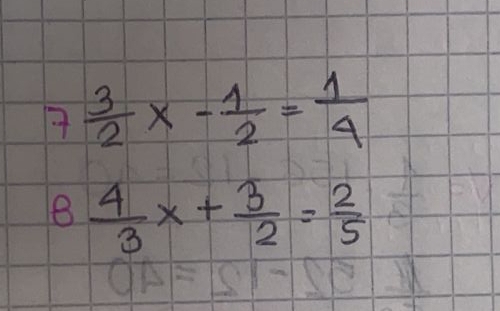 7 3/2 x - 1/2 = 1/4
8 4/3 x + 3/2 = 2/5